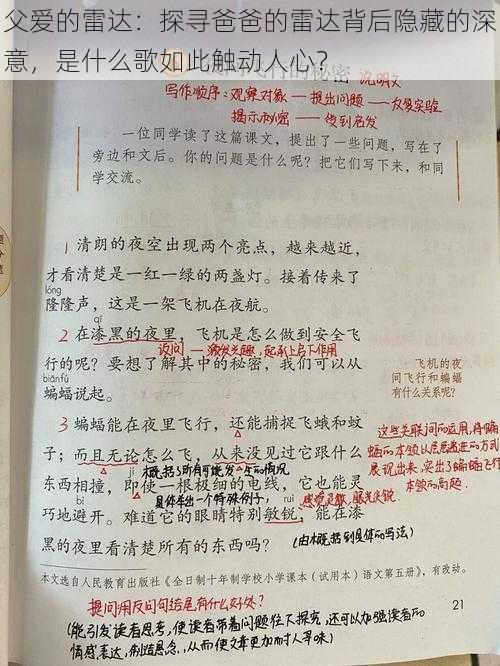 父爱的雷达：探寻爸爸的雷达背后隐藏的深
意，是什么歌如此触动人心？
说明文
写作顺序：观察对象—提出问题—反复实验
揭示秘密—得到启发
一位同学读了这篇课文，提出了一些问题，写在了
旁边和文后。你的问题是什么呢？把它们写下来，和同
学交流。
1 清朗的夜空出现两个亮点，越来越近，
才看清楚是一红一绿的两盏灯。接着传来了
lóng
隆隆声，这是一架飞机在夜航。
qī
2 在漆黑的夜里，飞机是怎么做到安全飞
设问—激发兴趣，起承上启下作用
行的呢？要想了解其中的秘密，我们可以从
biānfú
蝙蝠说起。
飞机的夜
间飞行和蝙蝠
有什么关系呢？
3 蝙蝠能在夜里飞行，还能捕捉飞蛾和蚊
子；而且无论怎么飞，从来没见过它跟什么
概括了所有可能发生的情况
东西相撞，即使一根极细的电线，它也能灵
具体举出一个特殊例子，
ruì
感觉灵敏，眼光尖锐
巧地避开。难道它的眼睛特别敏锐，能在漆
黑的夜里看清楚所有的东西吗？
(由概括到具体的写法)
这些关联词的运用，将蝙
蝠的本领以层层递进的方式
展现出来，突出了蝙蝠飞行
本领的高超
本文选自人民教育出版社《全日制十年制学校小学课本（试用本）语文第五册》，有改动。
21
提问用反问句结尾有什么好处？
(能引发读者思考，使读者带着问题往下探究，还可以加强读者的
情感表达，制造悬念，从而使文章更加耐人寻味)